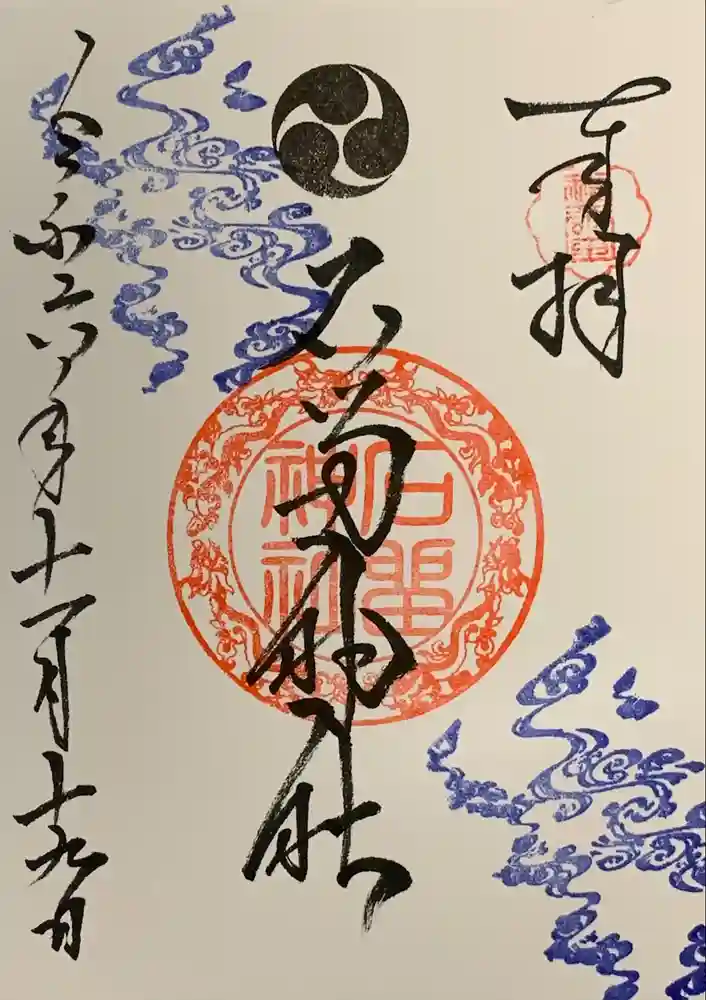 奉拝
石 神社
令和六年十一月十九日
石 神社